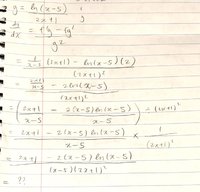 y = ln(x-5) / 2x+1
dy/dx = f'g - fg' / g²
= 1/x-5 (2x+1) - ln(x-5)(2) / (2x+1)²
= 2x+1/x-5 - 2ln(x-5) / (2x+1)²
= (2x+1/x-5 - 2(x-5)ln(x-5)/x-5) ÷ (2x+1)²
= 2x+1 - 2(x-5)ln(x-5) / x-5 × 1/(2x+1)²
= 2x+1 - 2(x-5)ln(x-5) / (x-5)(2x+1)²
= ??